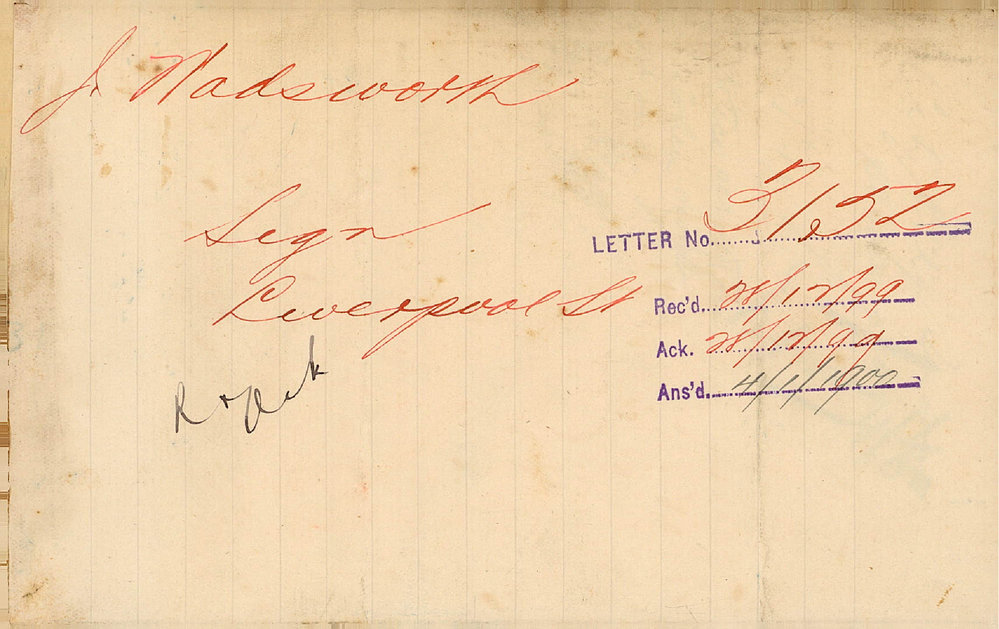 J. Wadsworth
Sign
Liverpool St
R & Ack
LETTER No. 3152
Rec'd. 28/12/99
Ack. 28/12/99
Ans'd. 4/1/1900